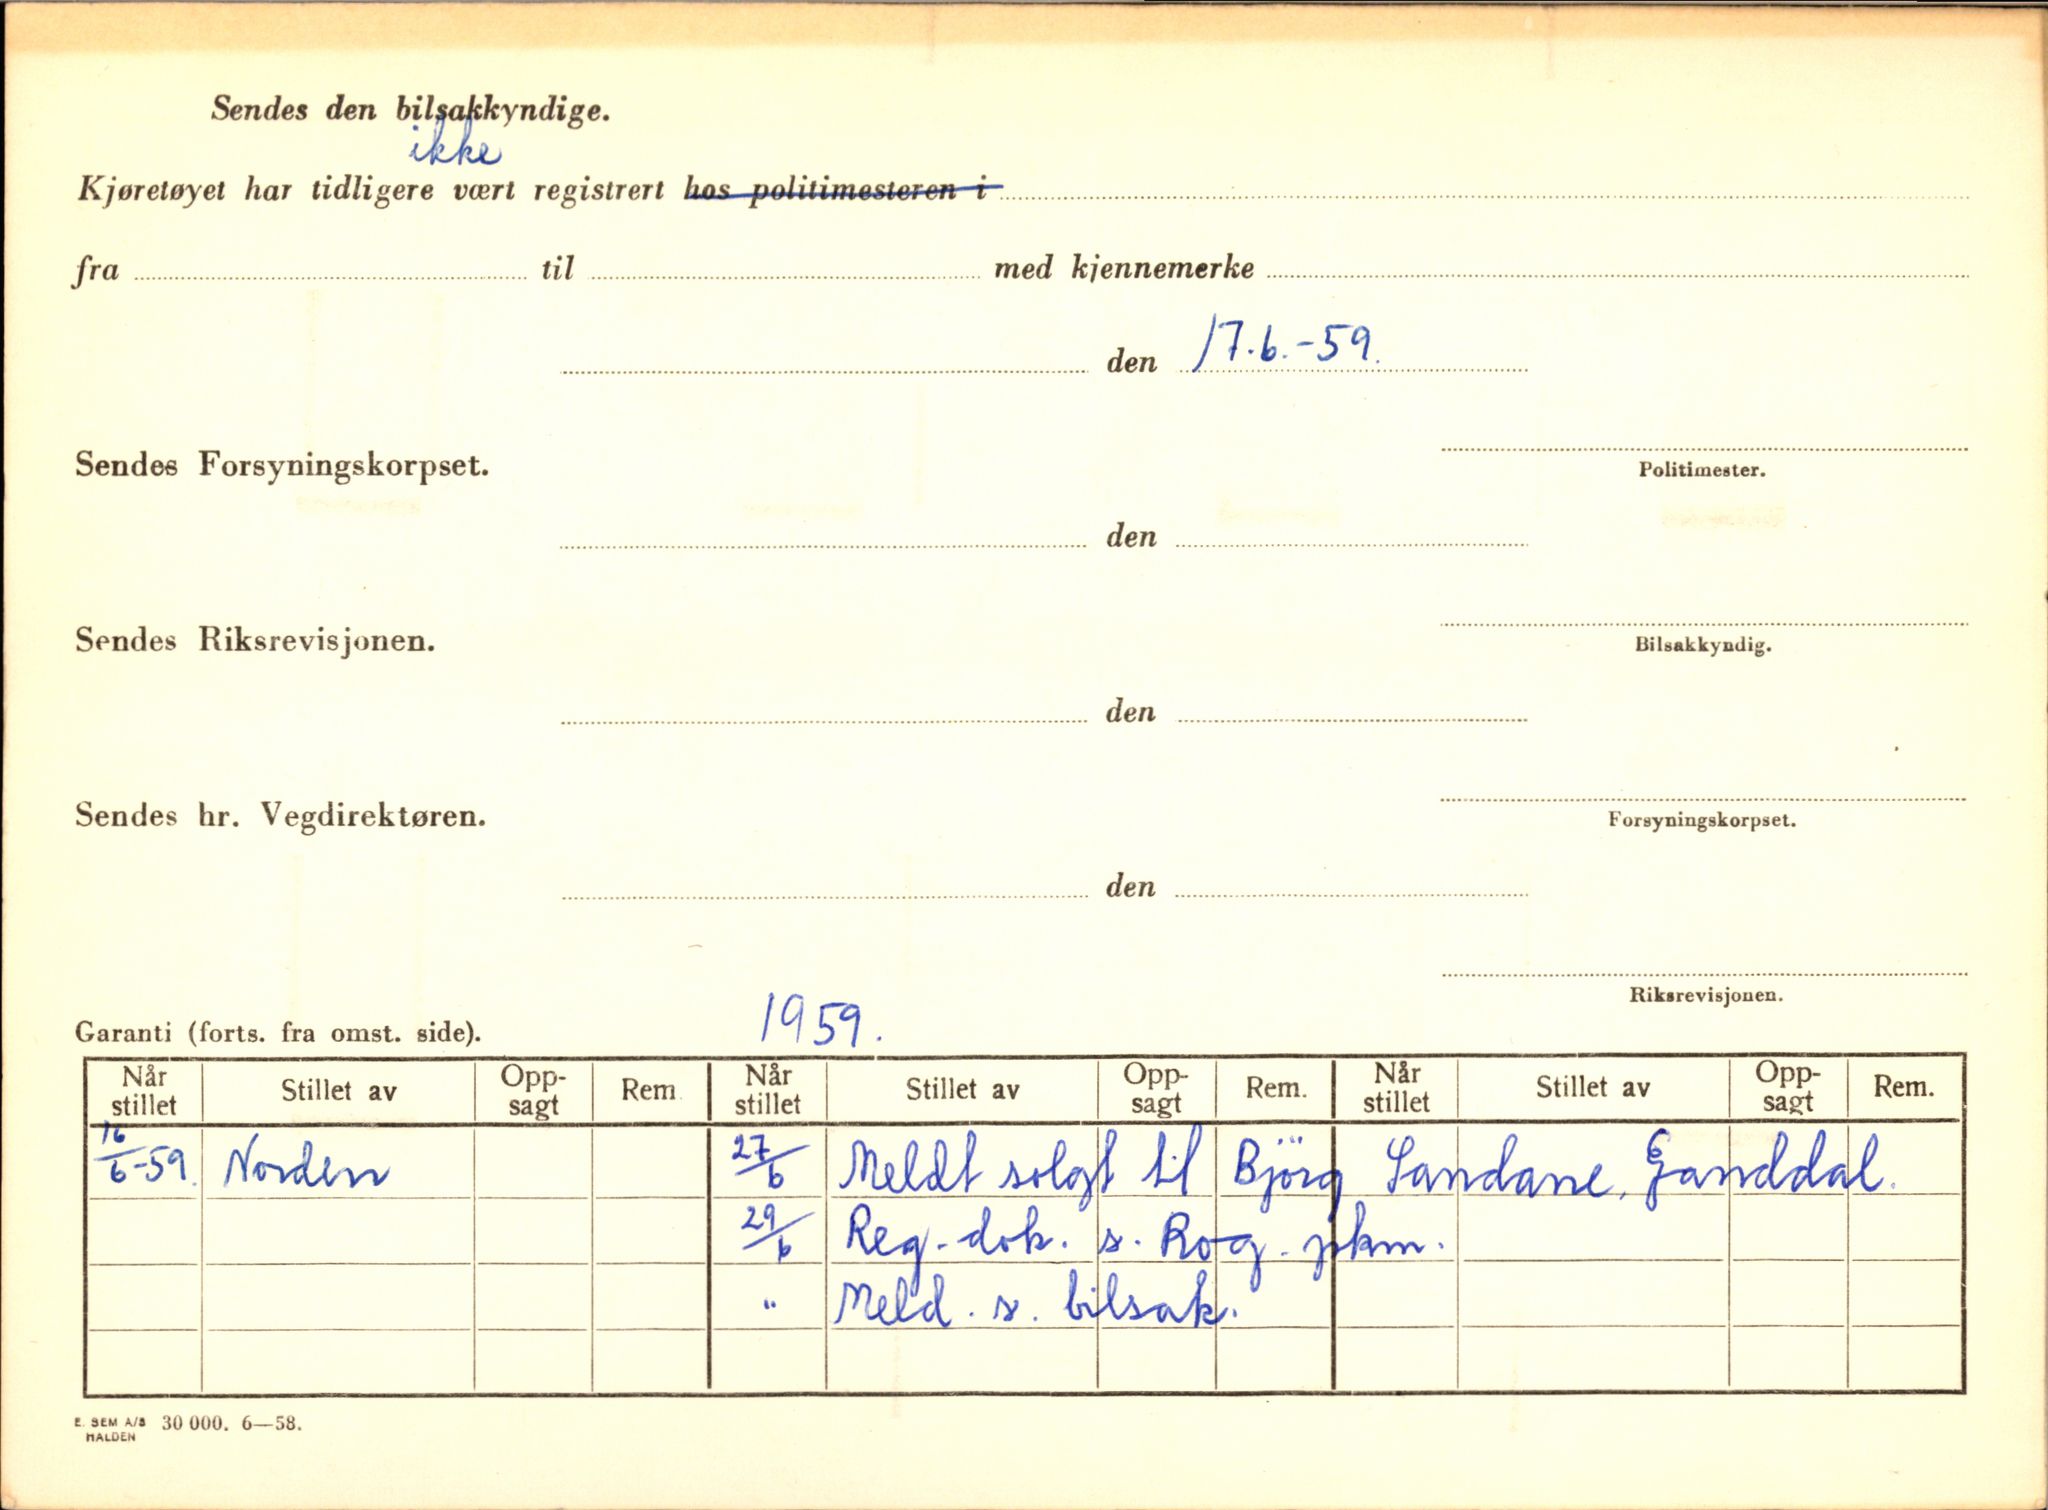 Sendes den bilsakkyndige.
ikke
Kjøretøyet har tidligere vært registrert hos politimesteren i
fra til med kjennemerke
den 17.6.-59.
Sendes Forsyningskorpset.
Politimester.
den
Sendes Riksrevisjonen.
Bilsakkyndig.
den
Sendes hr. Vegdirektøren.
Forsyningskorpset.
den
Riksrevisjonen.
Garanti (forts. fra omst. side). 1959.
Når stillet Stillet av Opp-sagt Rem Når stillet Stillet av Opp-sagt Rem. Når stillet Stillet av Opp-sagt Rem.
16/6-59. Norden 27/6 Meldt solgt til Björg Sandane, Ganddal.
29/6 Reg. dok. s. Rog. pkm.
" Meld. s. bilsak.
E. SEM A/S 30 000. 6—58.
HALDEN